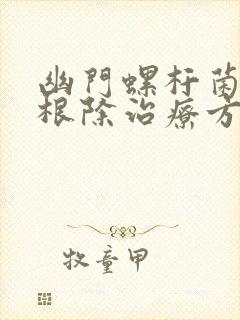 幽門螺杆菌
根除治療方
牧童甲